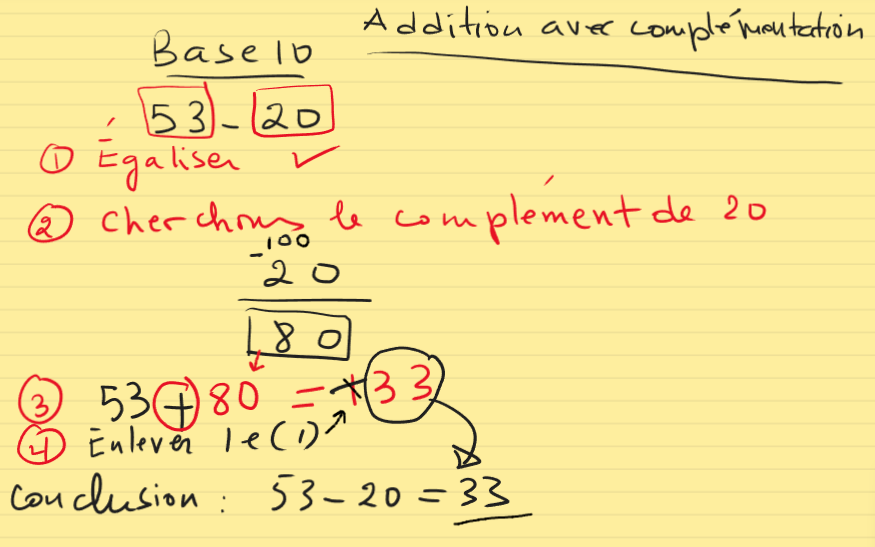 Addition avec complémentation
Base 10
53 - 20
① Égaliser ✓
② Cherchons le complément de 20
-100
20
80
③ 53 + 80 = 133
④ Enlever le (1)
Conclusion : 53 - 20 = 33